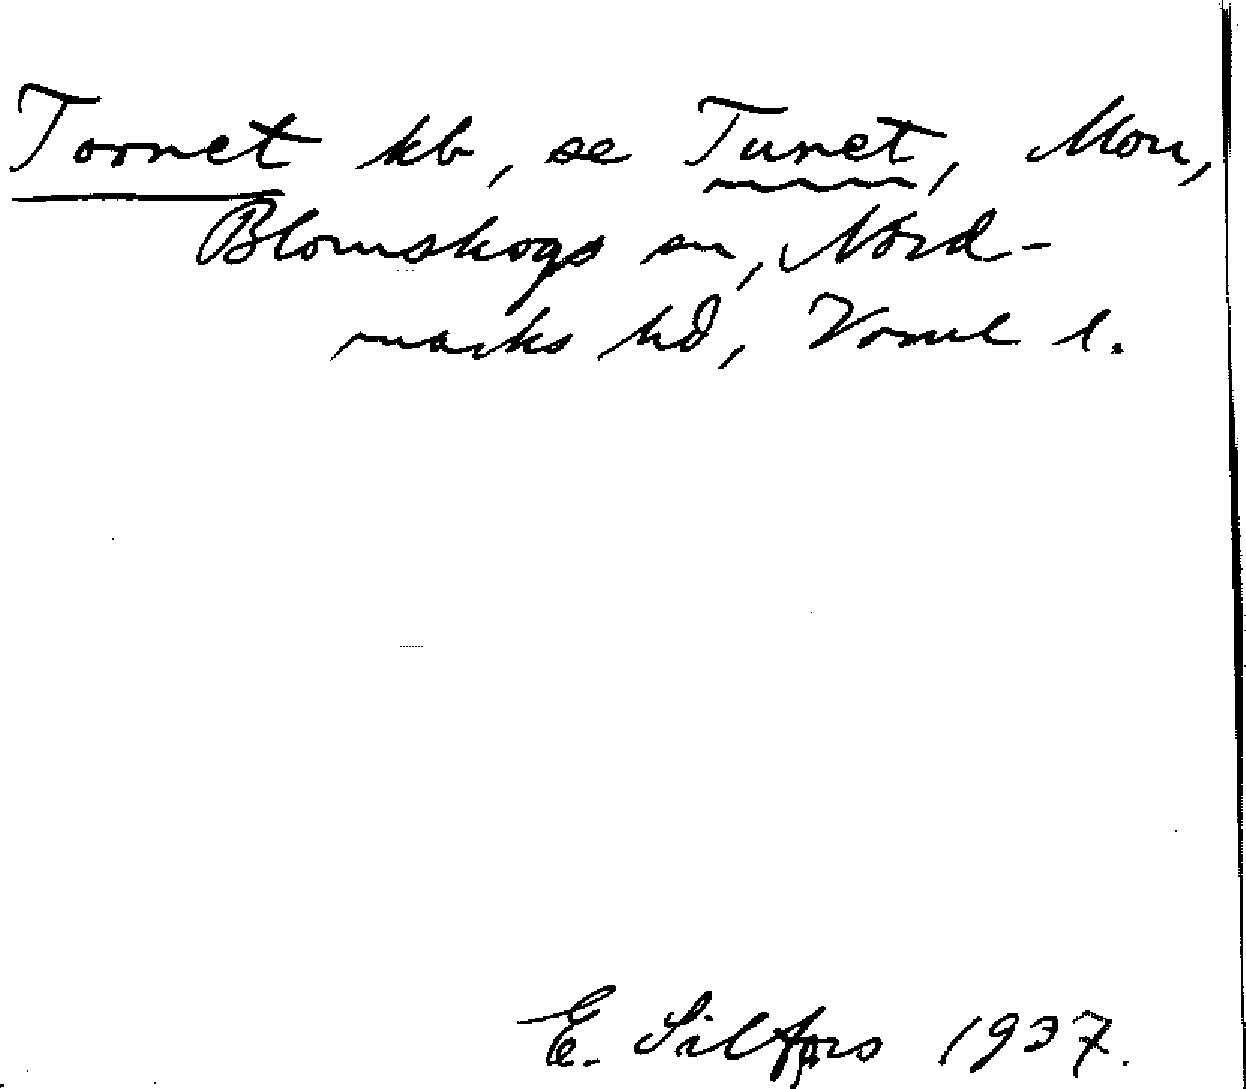 Tornet kb, se Tunet, Mon,
Blomskogs sn, Nord-
marks hd, Vrml l.
E. Silfors 1937.